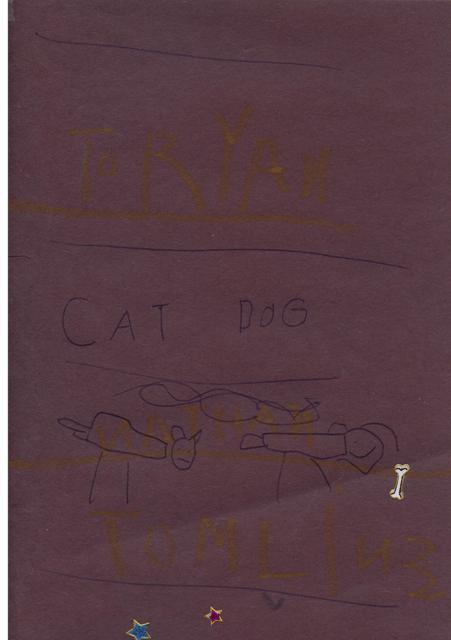 To RYAN
CAT DOG
NATHAN
TOML